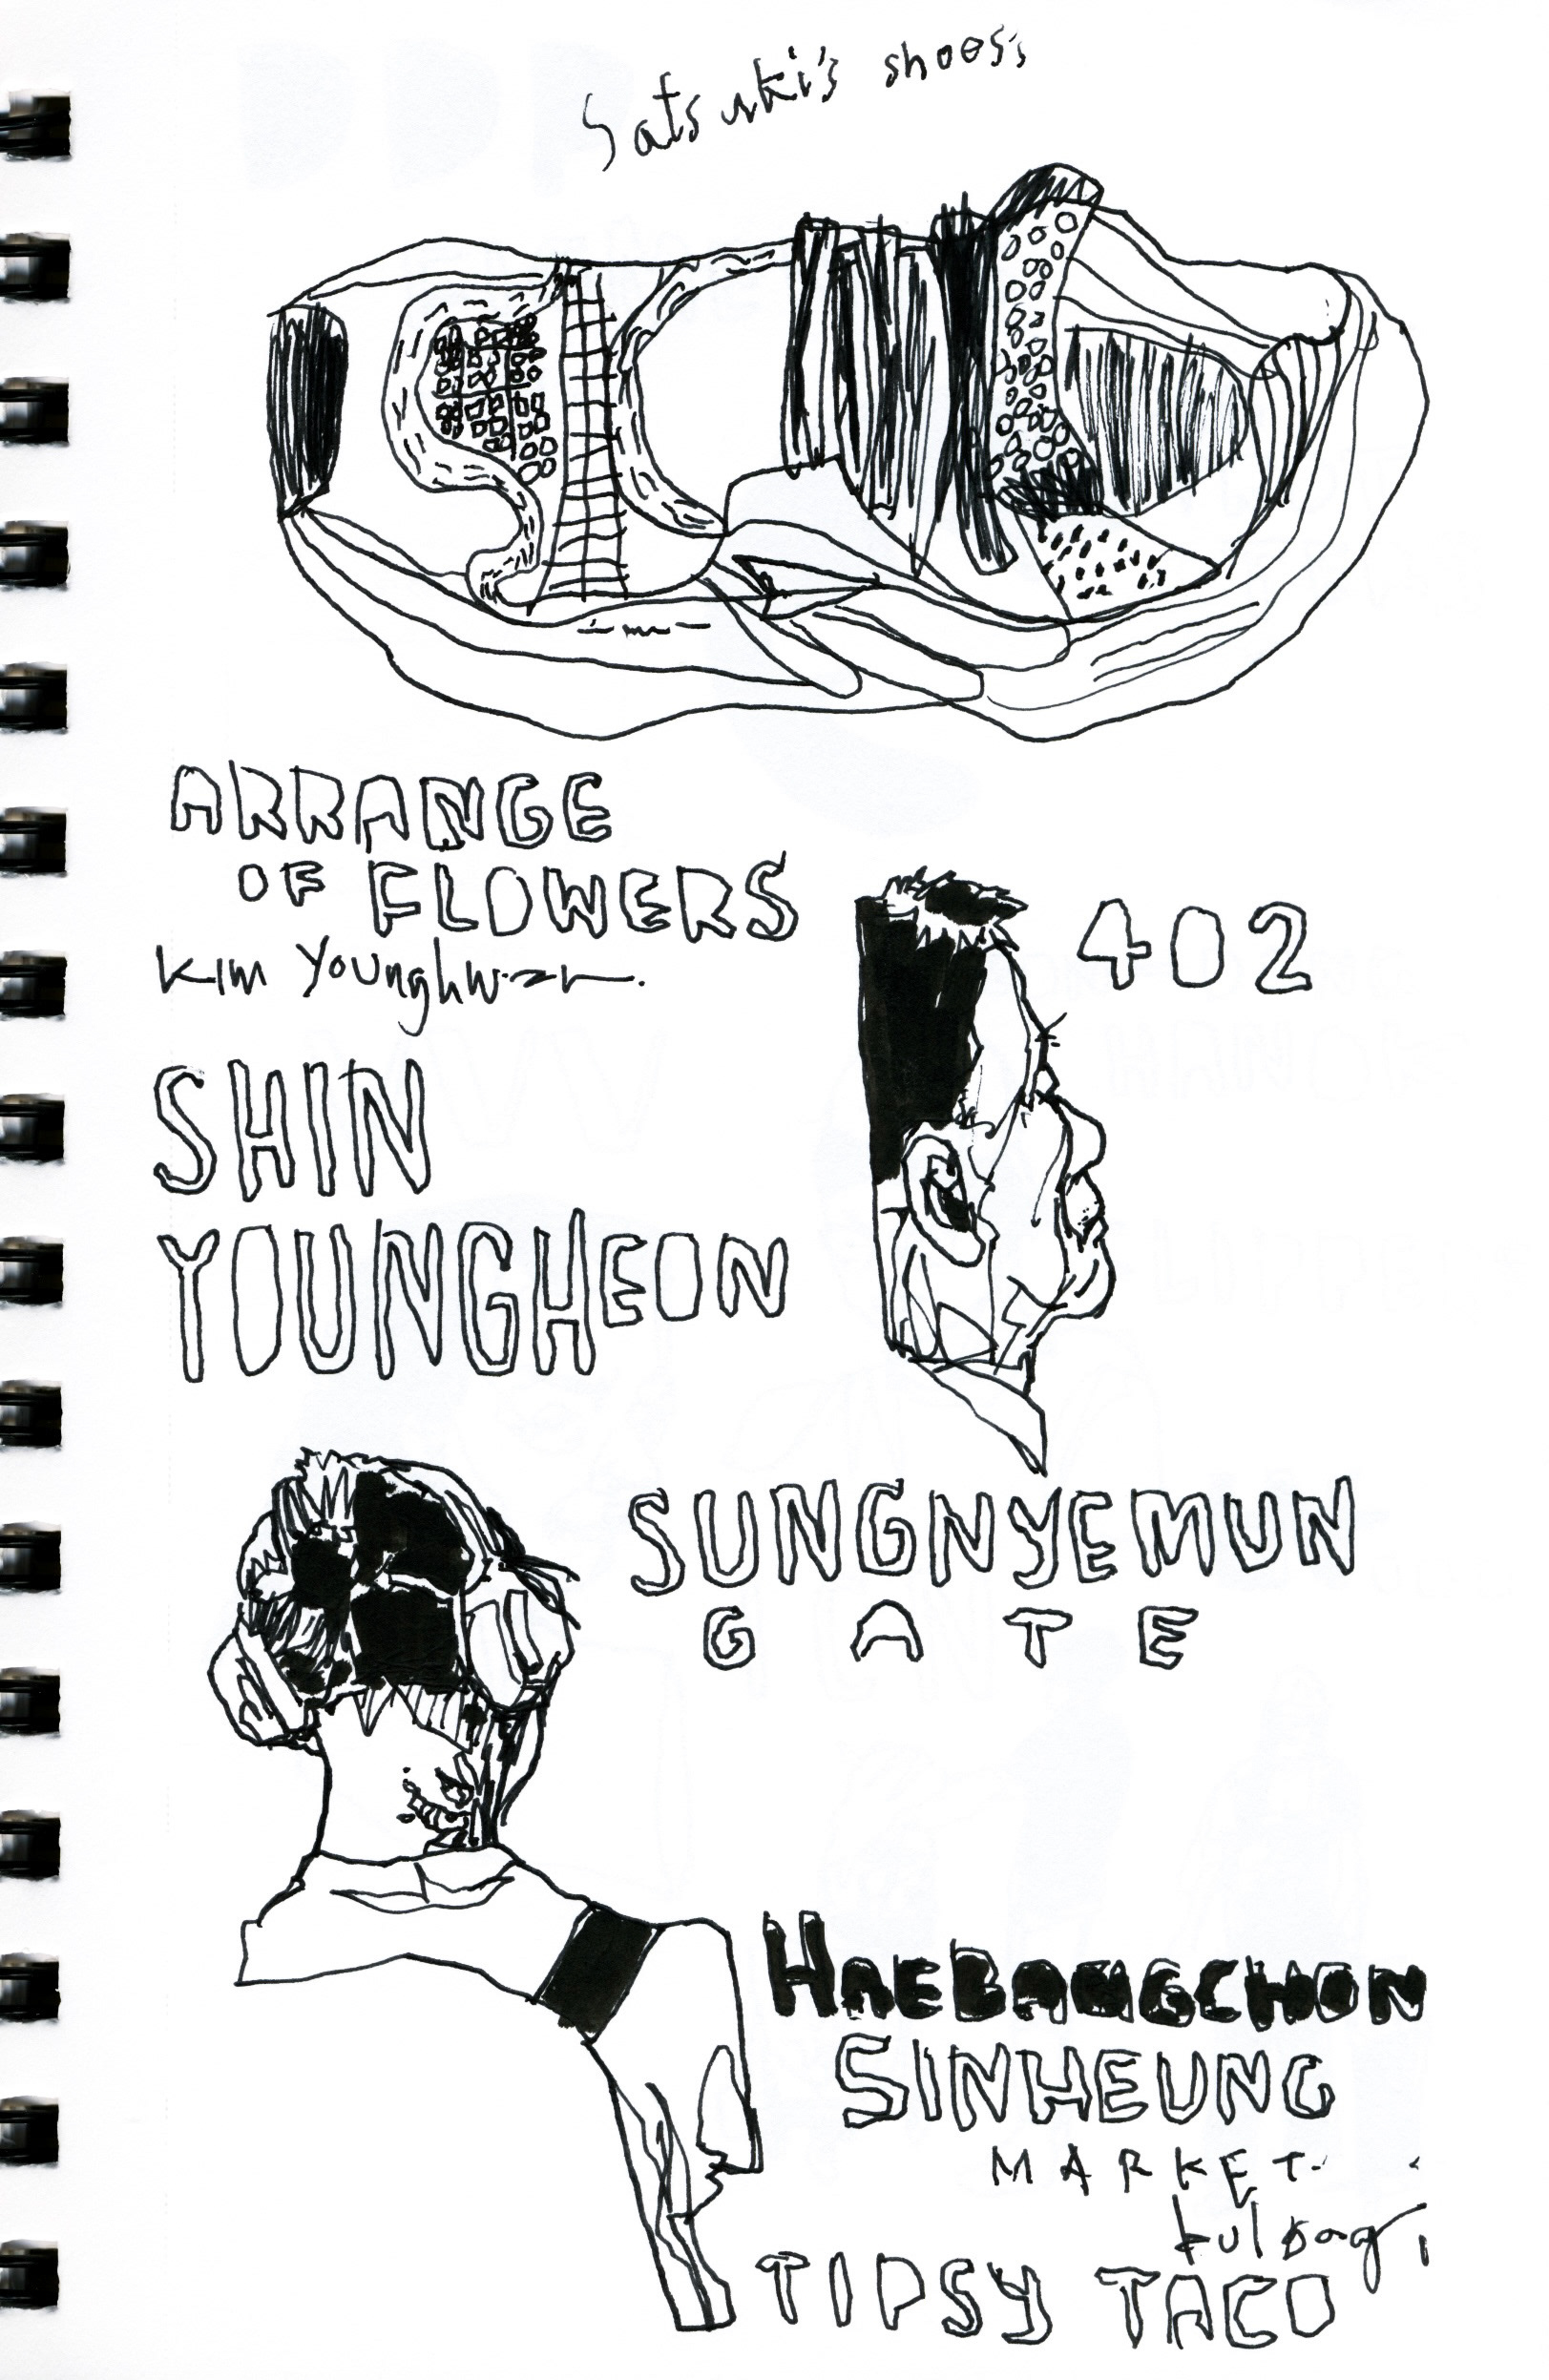 Satsuki's shoess
ARRANGE
OF FLOWERS
Kim Younghwan.
402
SHIN
YOUNGHEON
SUNGNYEMUN
GATE
HAEBANGCHON
SINHEUNG
MARKET.
TIPSY TACO